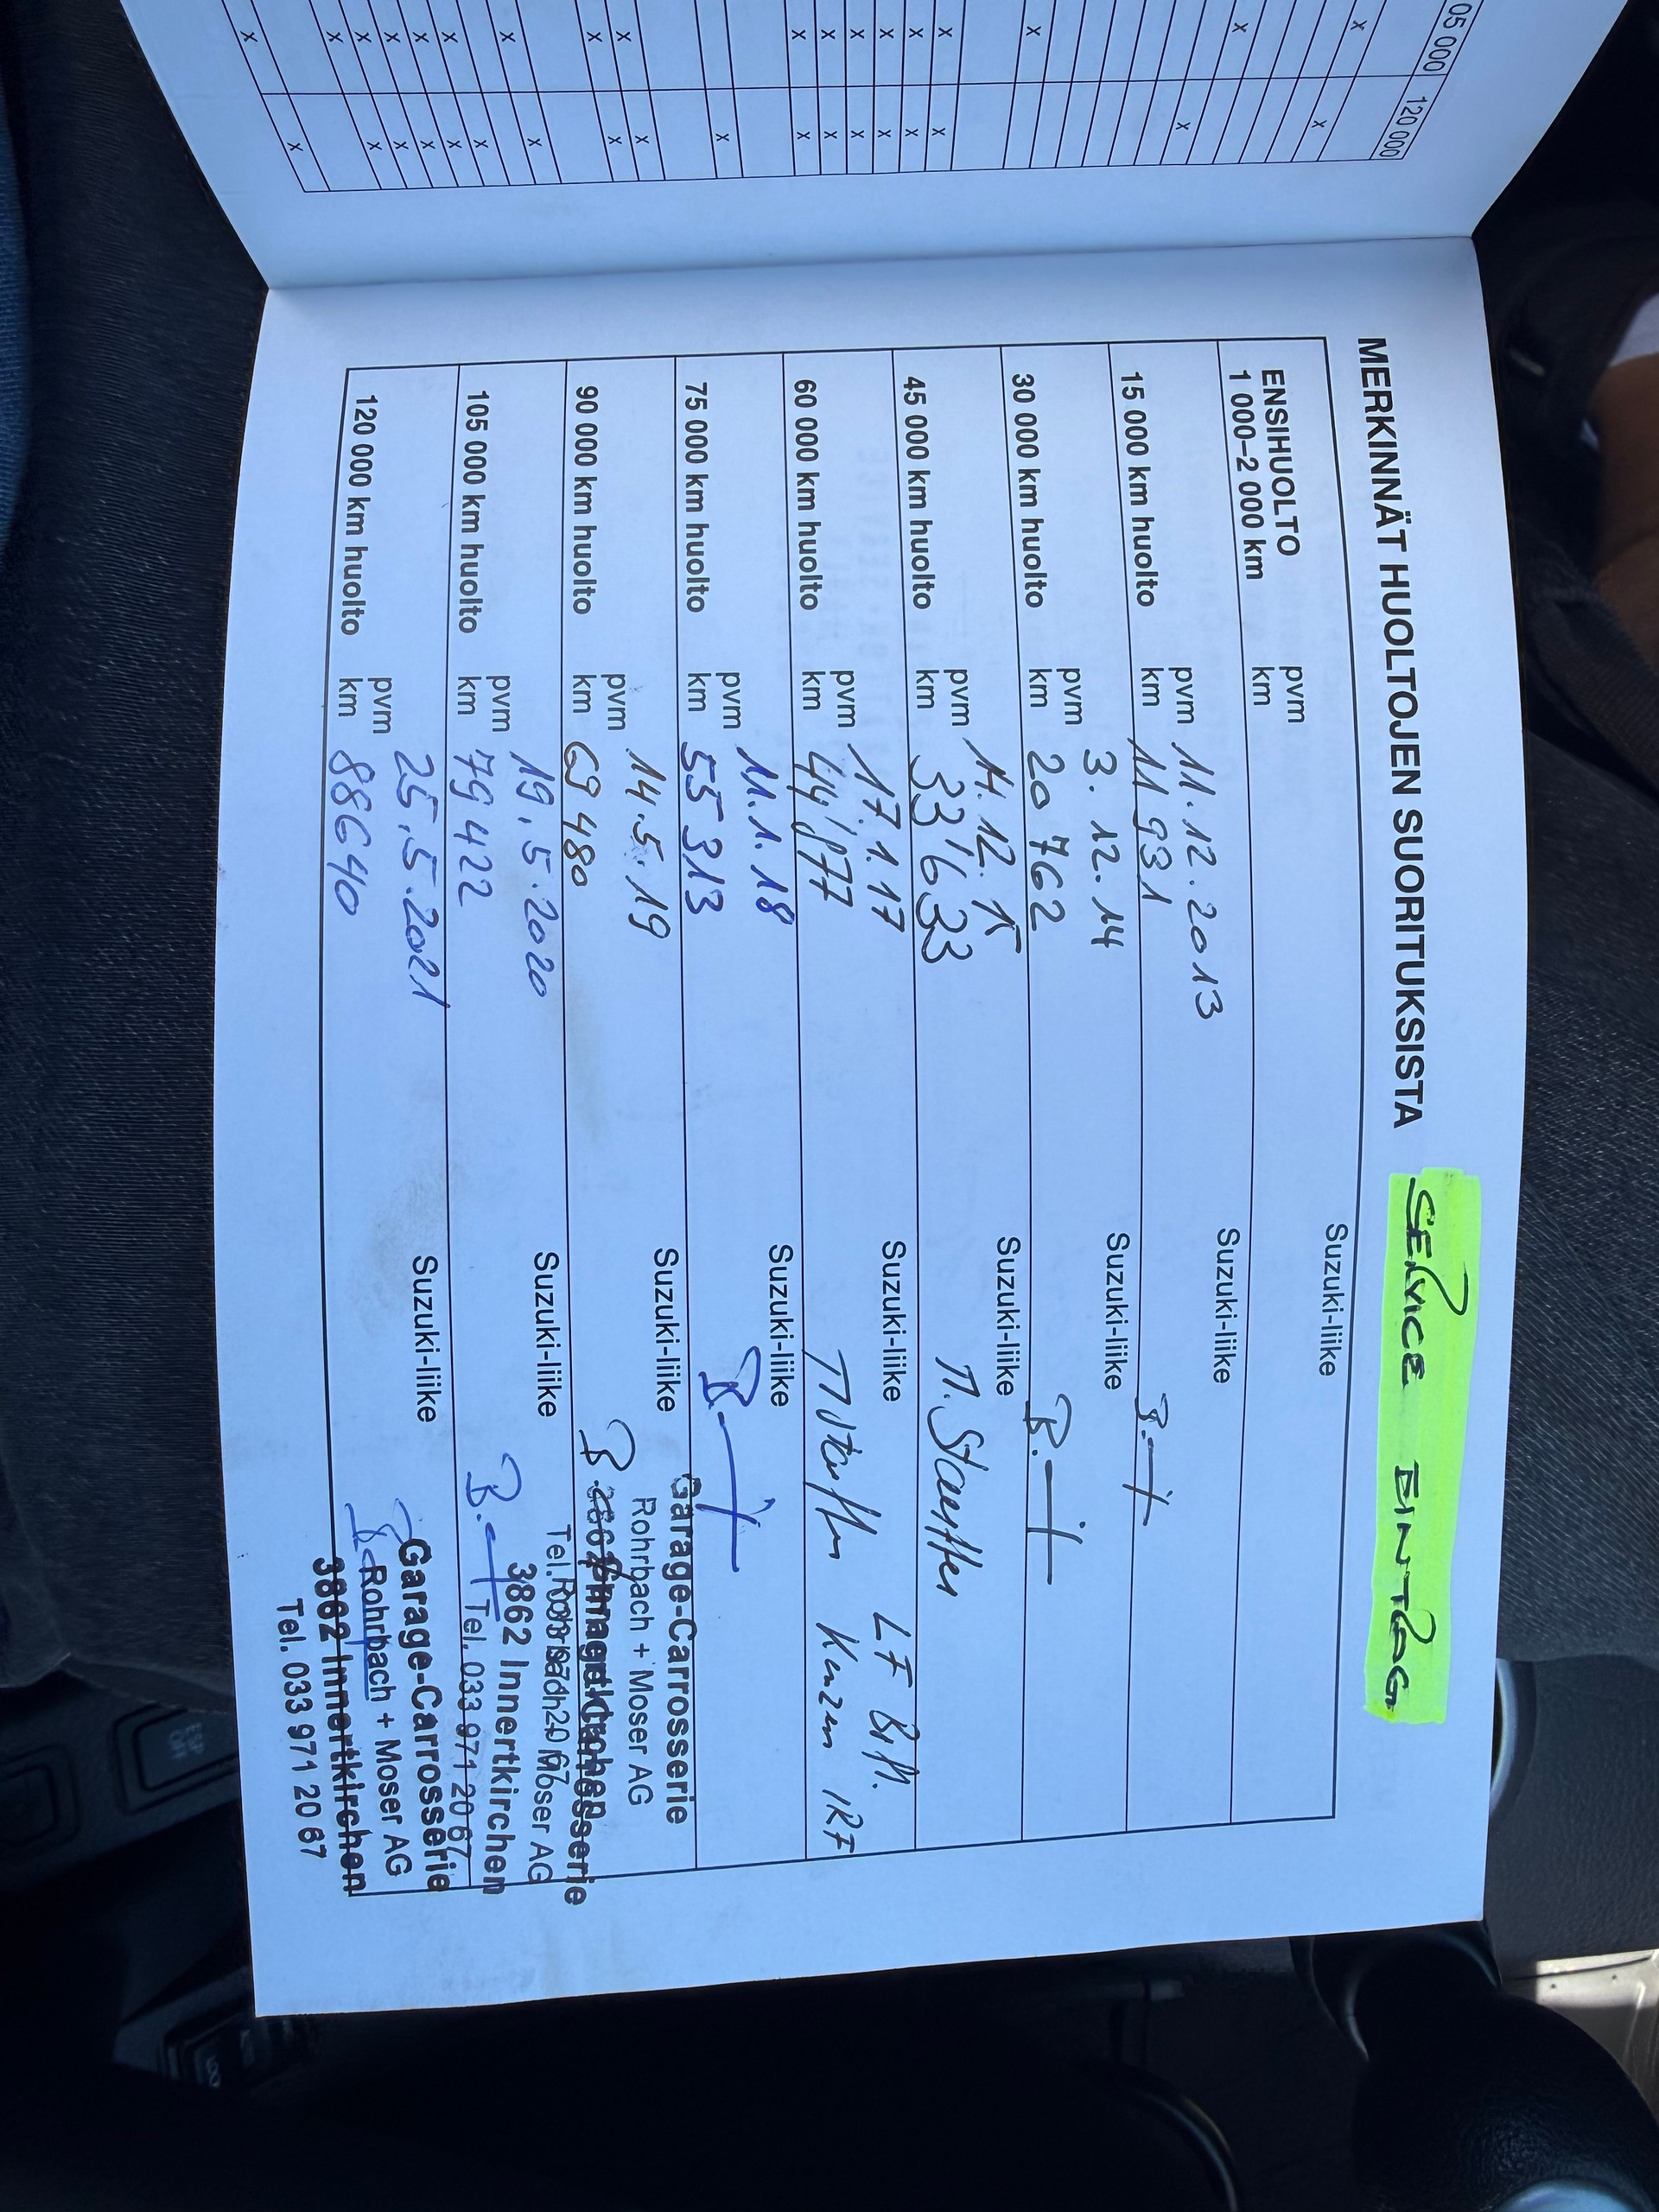 05 000 120 000
MERKINNÄT HUOLTOJEN SUORITUKSISTA SERVICE EINTRAG
ENSIHUOLTO
1 000–2 000 km
pvm
km
Suzuki-liike
15 000 km huolto
pvm 11.12.2013
km 11 931
Suzuki-liike
30 000 km huolto
pvm 3.12.14
km 20 762
Suzuki-liike
45 000 km huolto
pvm 14.12.15
km 33'633
Suzuki-liike
60 000 km huolto
pvm 17.1.17
km 44'877
Suzuki-liike
75 000 km huolto
pvm 11.1.18
km 55 313
Suzuki-liike
90 000 km huolto
pvm 14.5.19
km 69 480
Suzuki-liike
Garage-Carrosserie
Rohrbach + Moser AG
105 000 km huolto
pvm 19.5.2020
km 79 422
Suzuki-liike
3862 Innertkirchen
Tel. 033 971 20 67
120 000 km huolto
pvm 25.5.2021
km 88640
Suzuki-liike
Garage-Carrosserie
Rohrbach + Moser AG
3862 Innertkirchen
Tel. 033 971 20 67